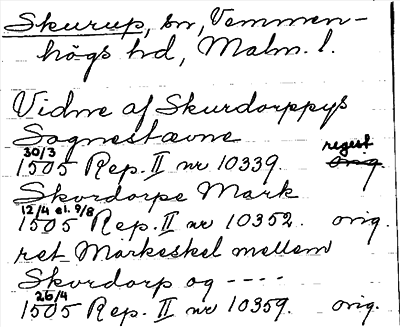 Skurup, sn, Vemmen-
högs hd, Malm. l.
Vidne af Skurdorppys
Sognestævne
30/3
1505 Rep. II nr 10339. regest orig.
Skordorpe Mark
12/4 el. 9/8
1505 Rep. II nr 10352. orig.
ret Markeskel mellem
Skordorp og ----
26/4
1505 Rep. II nr 10359. orig.